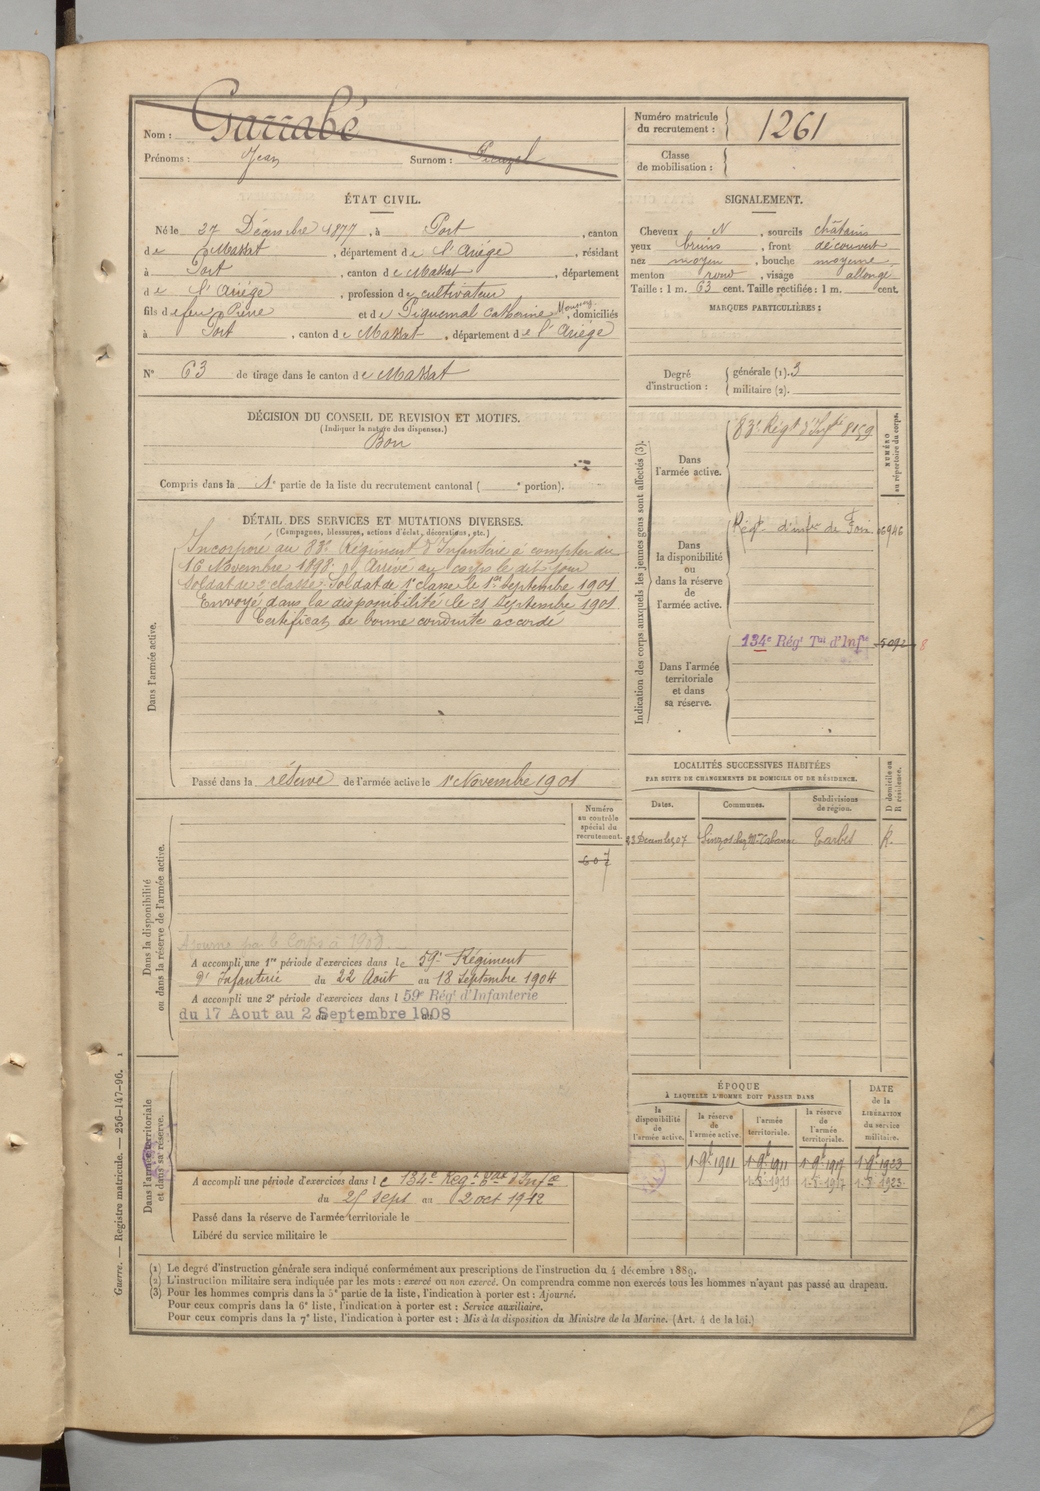 Nom : Garrabé
Prénoms : Jean Surnom :
Numéro matricule du recrutement : 1261
Classe de mobilisation :
ÉTAT CIVIL.
Né le 27 Décembre 1877, à Port, canton
de Massat, département de l'Ariége, résidant
à Port, canton de Massat, département
de l'Ariége, profession de cultivateur
fils de feu Pierre et de Piquemal Catherine, domiciliés
à Port, canton de Massat, département de l'Ariége
N° 63 de tirage dans le canton de Massat
SIGNALEMENT.
Cheveux N, sourcils châtains
yeux bruns, front découvert
nez moyen, bouche moyenne,
menton rond, visage allongé
Taille : 1 m. 63 cent. Taille rectifiée : 1 m. cent.
MARQUES PARTICULIÈRES :
Degré d'instruction : générale (1). 3
militaire (2).
DÉCISION DU CONSEIL DE REVISION ET MOTIFS.
(Indiquer la nature des dispenses.)
Bon
Compris dans la 1e partie de la liste du recrutement cantonal ( e portion).
DÉTAIL DES SERVICES ET MUTATIONS DIVERSES.
(Campagnes, blessures, actions d'éclat, décorations, etc.)
Dans l'armée active.
Incorporé au 83e Régiment d'Infanterie à compter du
16 Novembre 1898. Arrivé au corps le dit jour
Soldat de 2e classe. Soldat de 1e classe le 1er Septembre 1901
Envoyé dans la disponibilité le 21 Septembre 1901
Certificat de bonne conduite accordé
Passé dans la réserve de l'armée active le 1e Novembre 1901
Indication des corps auxquels les jeunes gens sont affectés (3).
NUMÉRO au répertoire du corps.
Dans l'armée active.
83e Régt d'Infie 8159
Dans la disponibilité ou dans la réserve de l'armée active.
Régt d'infie de Foix 06946
Dans l'armée territoriale et dans sa réserve.
134e Régt Tal d'Infie
LOCALITÉS SUCCESSIVES HABITÉES
PAR SUITE DE CHANGEMENTS DE DOMICILE OU DE RÉSIDENCE.
Dates. Communes. Subdivisions de région. D domicile ou R résidence.
Tarbes R.
Numéro au contrôle spécial du recrutement.
607
Dans la disponibilité ou dans la réserve de l'armée active.
Ajourné par le Corps à 1908
A accompli une 1re période d'exercices dans le 59e Régiment
d'Infanterie du 22 Août au 18 Septembre 1904
A accompli une 2e période d'exercices dans l 59e Régt d'Infanterie
du 17 Aout au 2 Septembre 1908
Dans l'armée territoriale et dans sa réserve.
A accompli une période d'exercices dans le 134e Régt d'Infie
du 25 Sept au 2 oct 1912
Passé dans la réserve de l'armée territoriale le
Libéré du service militaire le
ÉPOQUE
À LAQUELLE L'HOMME DOIT PASSER DANS
la disponibilité de l'armée active.
la réserve de l'armée active.
l'armée territoriale.
la réserve de l'armée territoriale.
DATE de la LIBÉRATION du service militaire.
1 9e 1901 1 9e 1911 1 9e 1917 1 9e 1923
(1) Le degré d'instruction générale sera indiqué conformément aux prescriptions de l'instruction du 4 décembre 1889.
(2) L'instruction militaire sera indiquée par les mots : exercé ou non exercé. On comprendra comme non exercés tous les hommes n'ayant pas passé au drapeau.
(3) Pour les hommes compris dans la 5e partie de la liste, l'indication à porter est : Ajourné.
Pour ceux compris dans la 6e liste, l'indication à porter est : Service auxiliaire.
Pour ceux compris dans la 7e liste, l'indication à porter est : Mis à la disposition du Ministre de la Marine. (Art. 4 de la loi.)
Guerre. — Registre matricule. — 256-147-96.